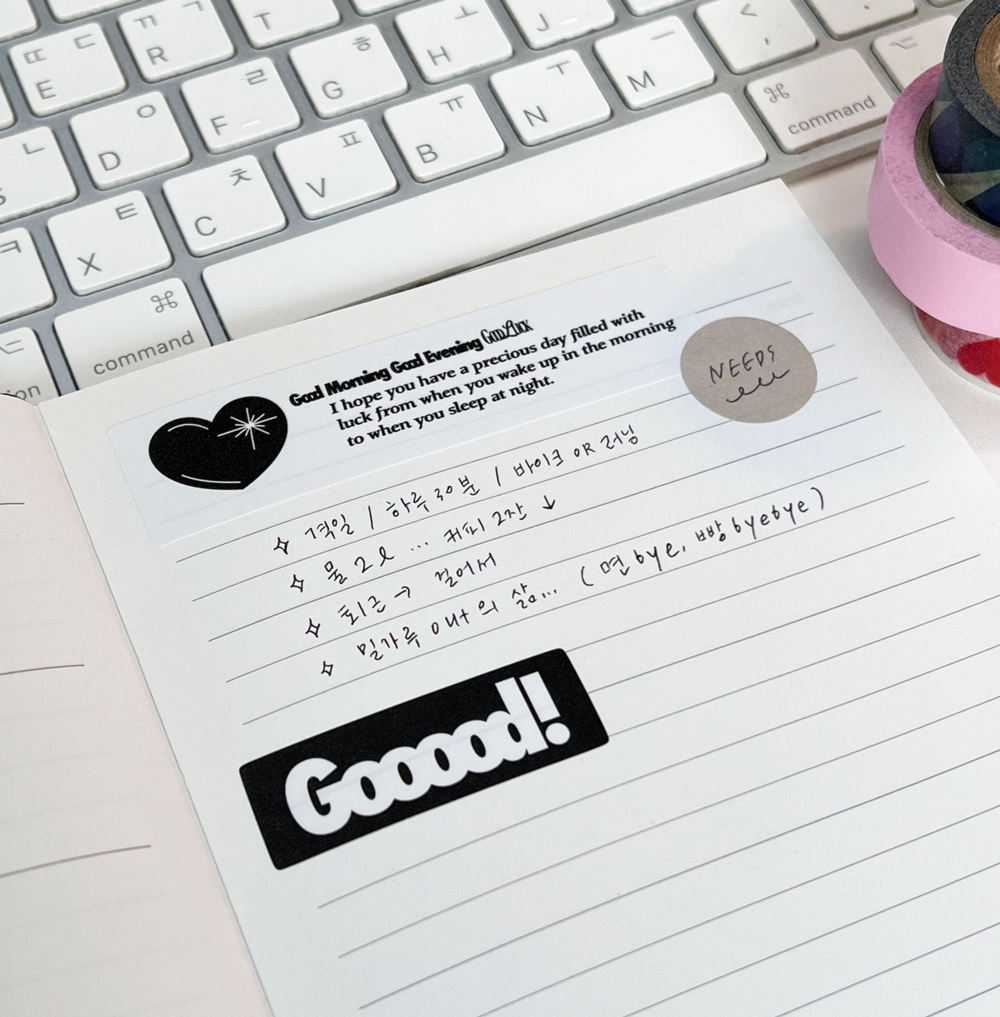 ㄲ ㄱ R
T
ㅗ H
J
<
,
ㄸ ㄷ E
ㄹ F
ㅎ G
ㅡ M
⌘ command
ㄴ S
ㅇ D
ㅠ B
ㅜ N
ㅋ
ㅌ X
ㅊ C
ㅍ V
⌘ command
Good Morning Good Evening Good Luck
I hope you have a precious day filled with
luck from when you wake up in the morning
to when you sleep at night.
NEEDS
✧ 격일 / 하루 30분 / 바이크 OR 러닝
✧ 물 2l ... 커피 2잔 ↓
✧ 퇴근 → 걸어서
✧ 밀가루 out의 삶... (면 bye, 빵 byebye)
Gooood!